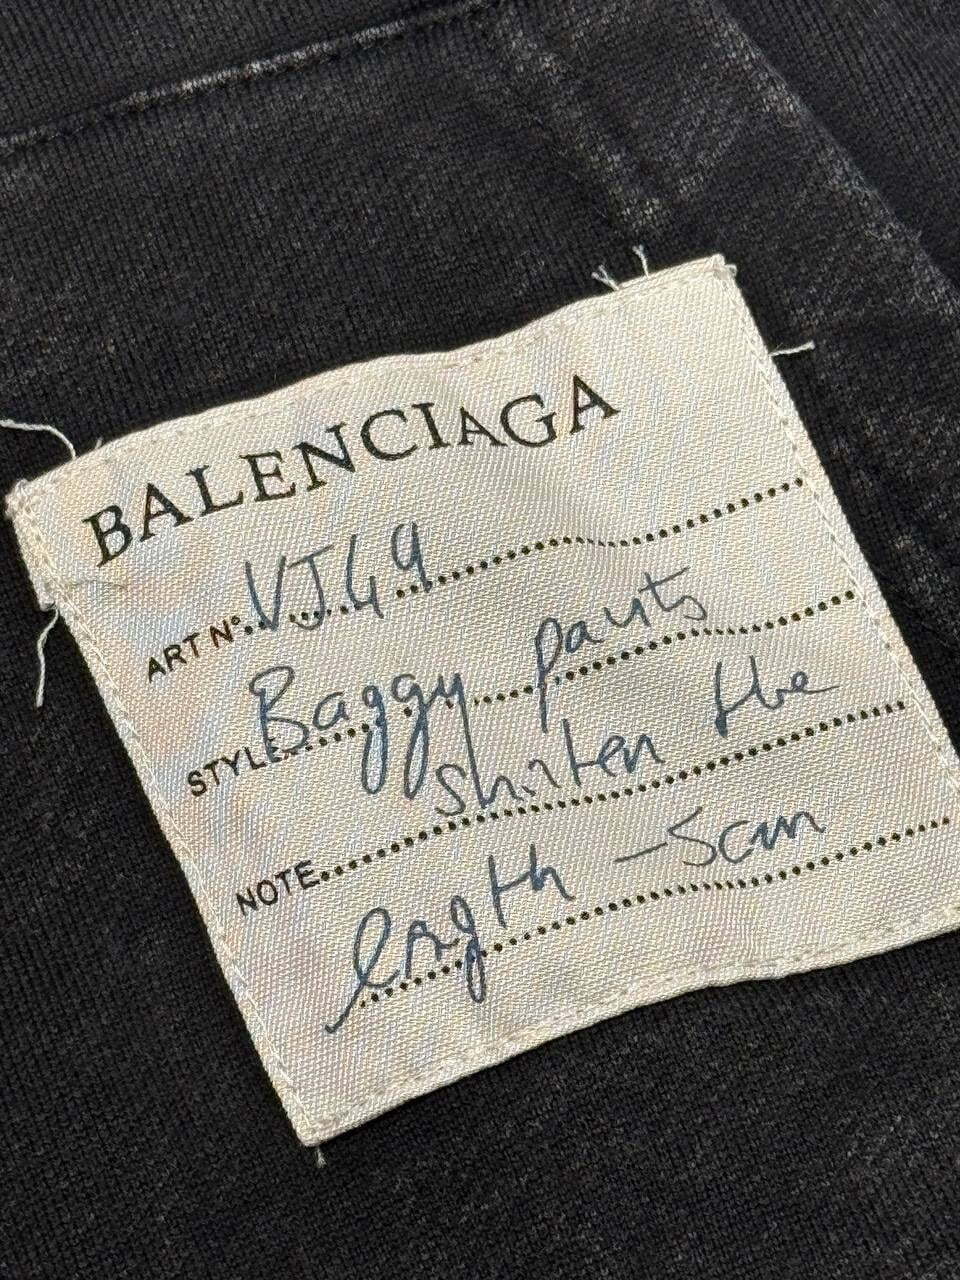 BALENCIAGA
ART N° VJ49
STYLE Baggy pants
NOTE shirten the
length -5cm